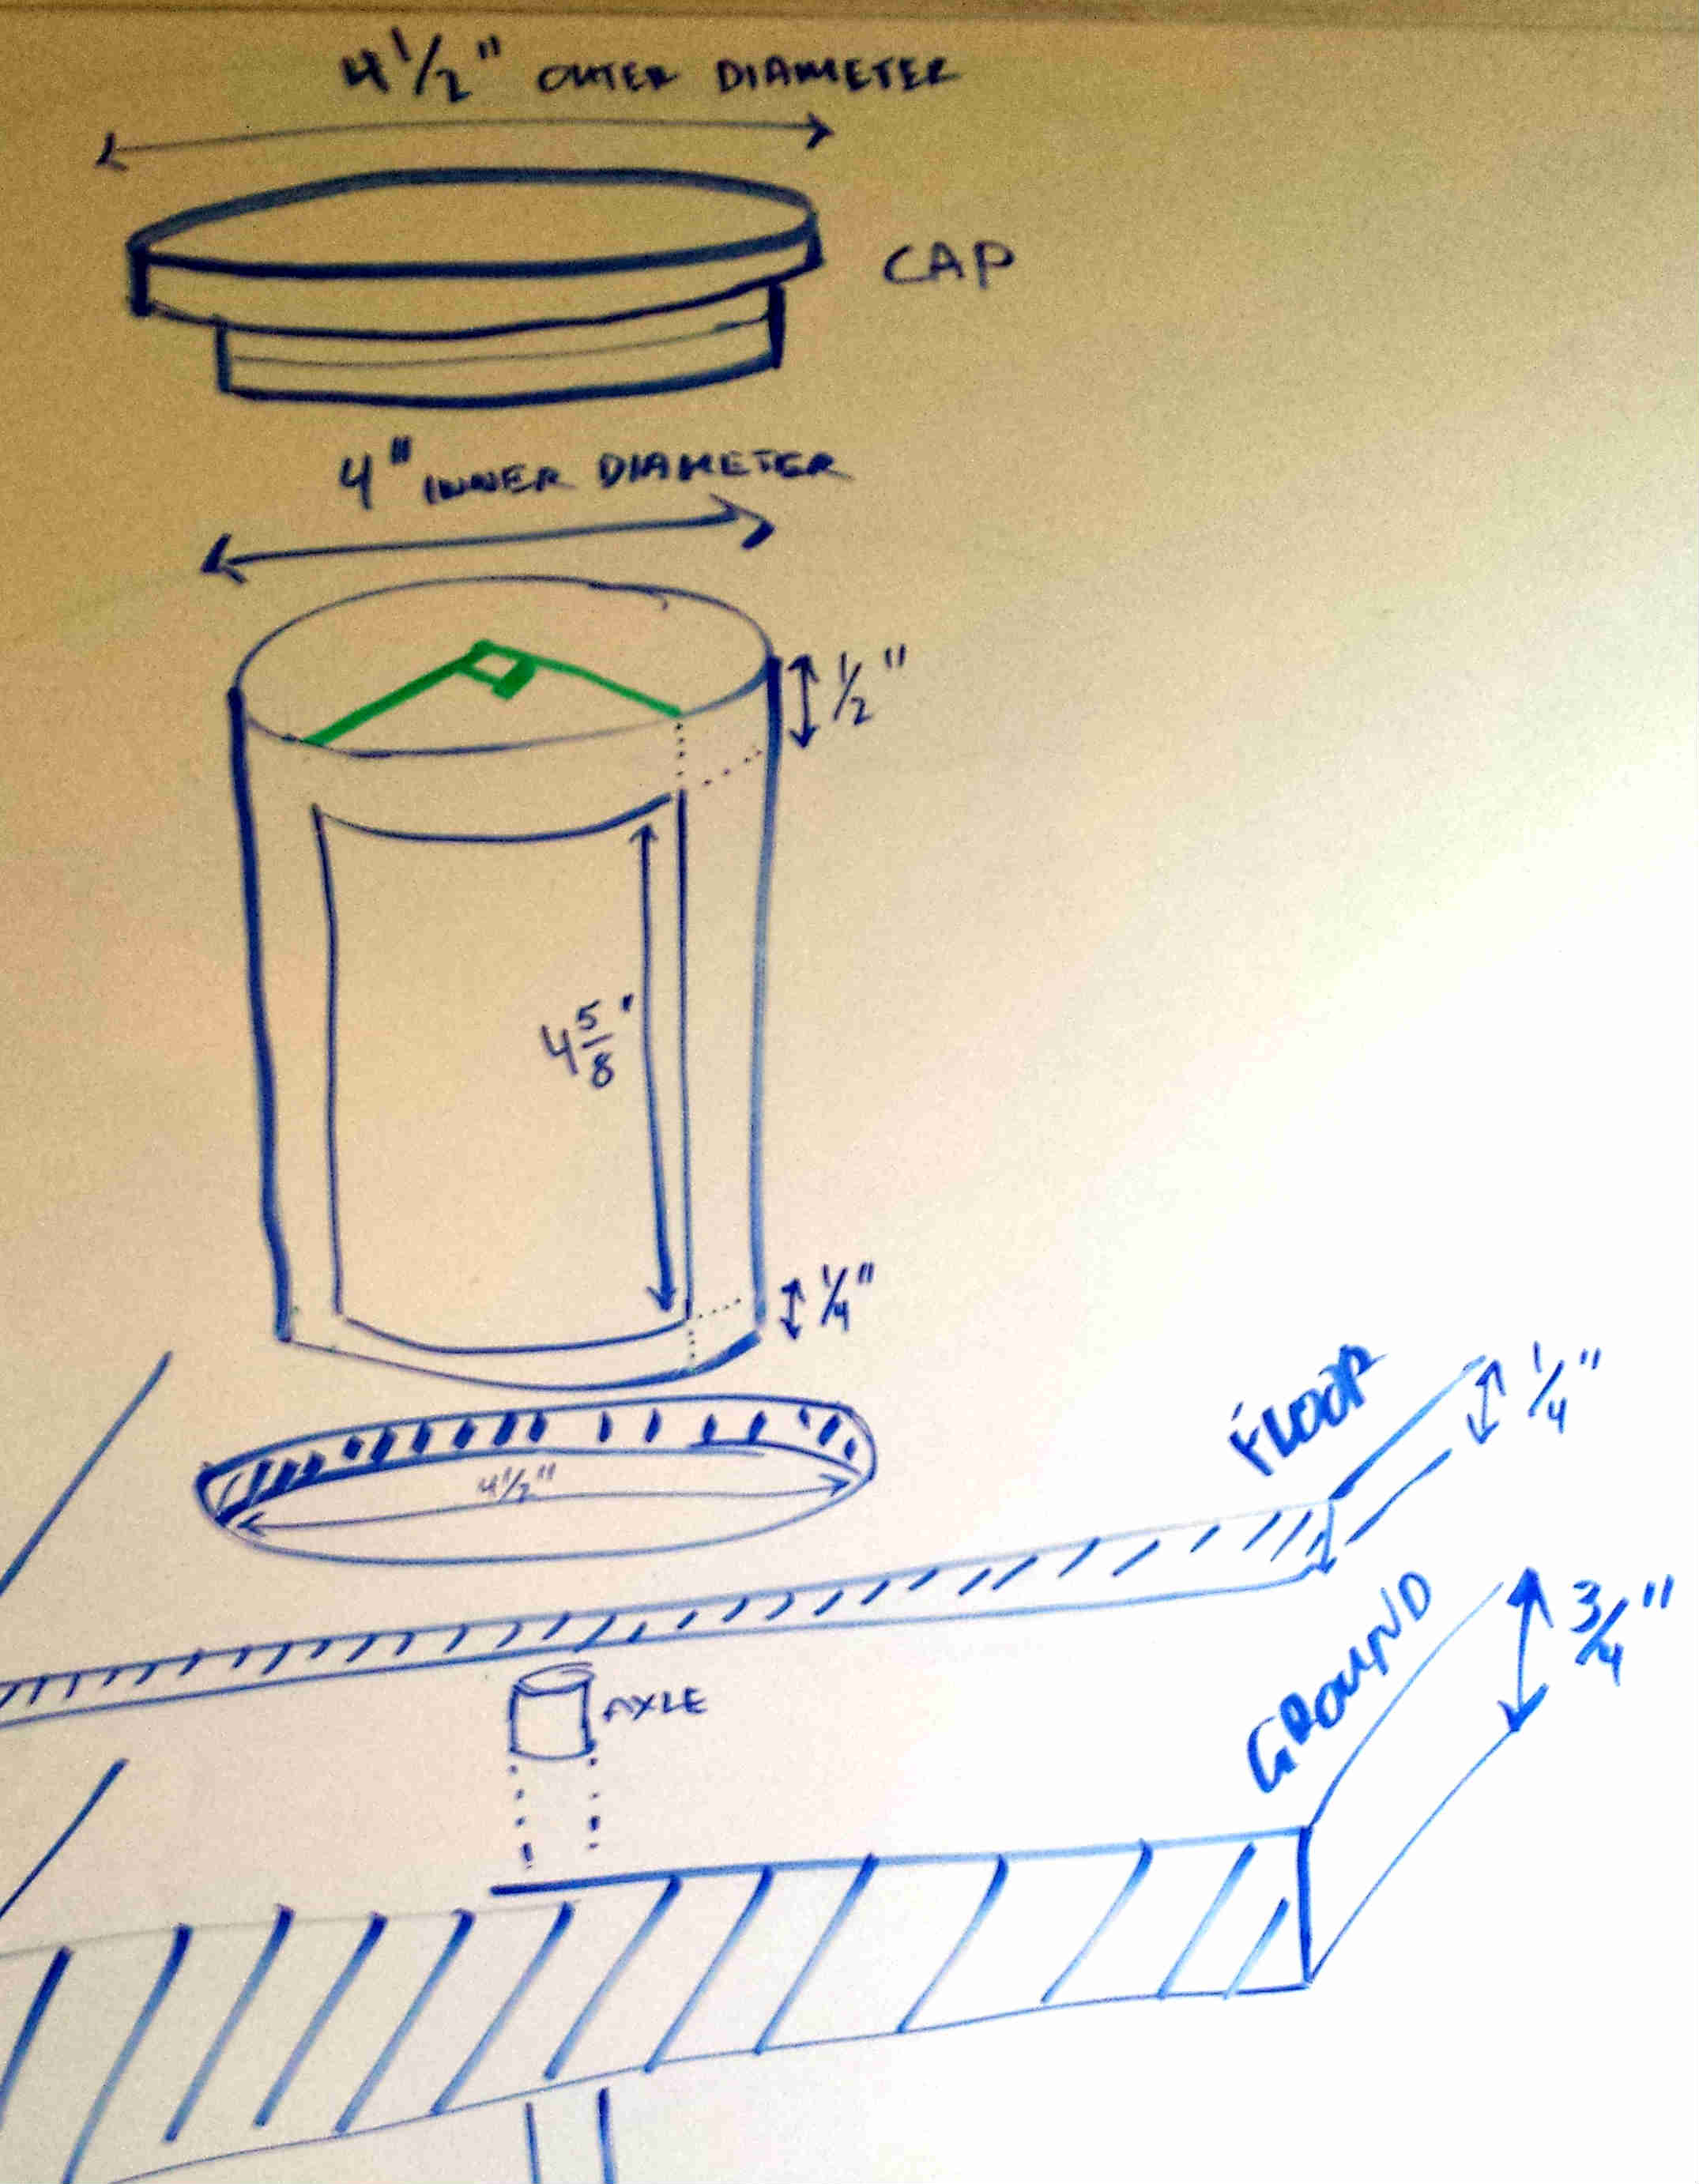 4 1/2" OUTER DIAMETER
CAP
4" INNER DIAMETER
1/2"
4 5/8"
1/4"
4 1/2"
FLOOR
1/4"
AXLE
GROUND
3/4"